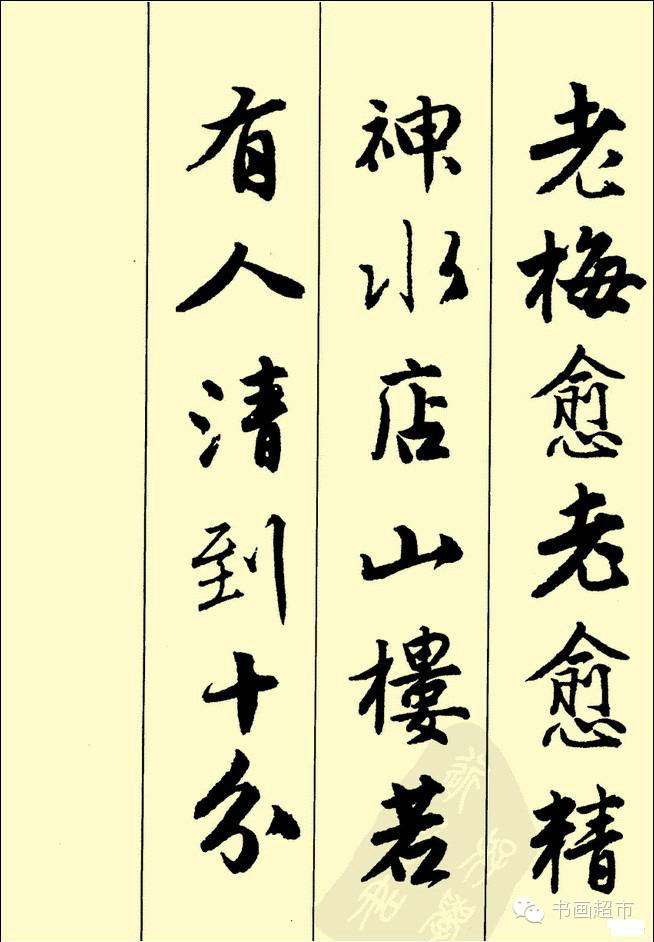 老梅愈老愈精
神水店山樓若
有人清到十分
书画超市